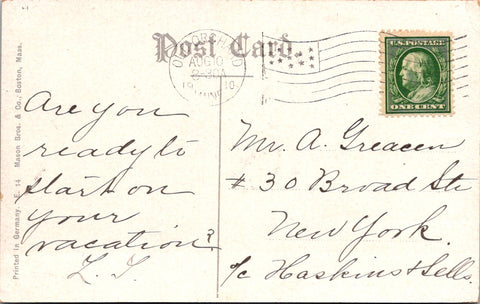 Post Card
OLD ORCHARD
AUG 10
U.S. POSTAGE
ONE CENT
Are you
ready to
start on
your
vacation?
L. S.
Mr. A. Greacen
# 30 Broad St.
New York.
c/o Haskins & Sells.
Printed in Germany. E. 14 Mason Bros. & Co., Boston, Mass.